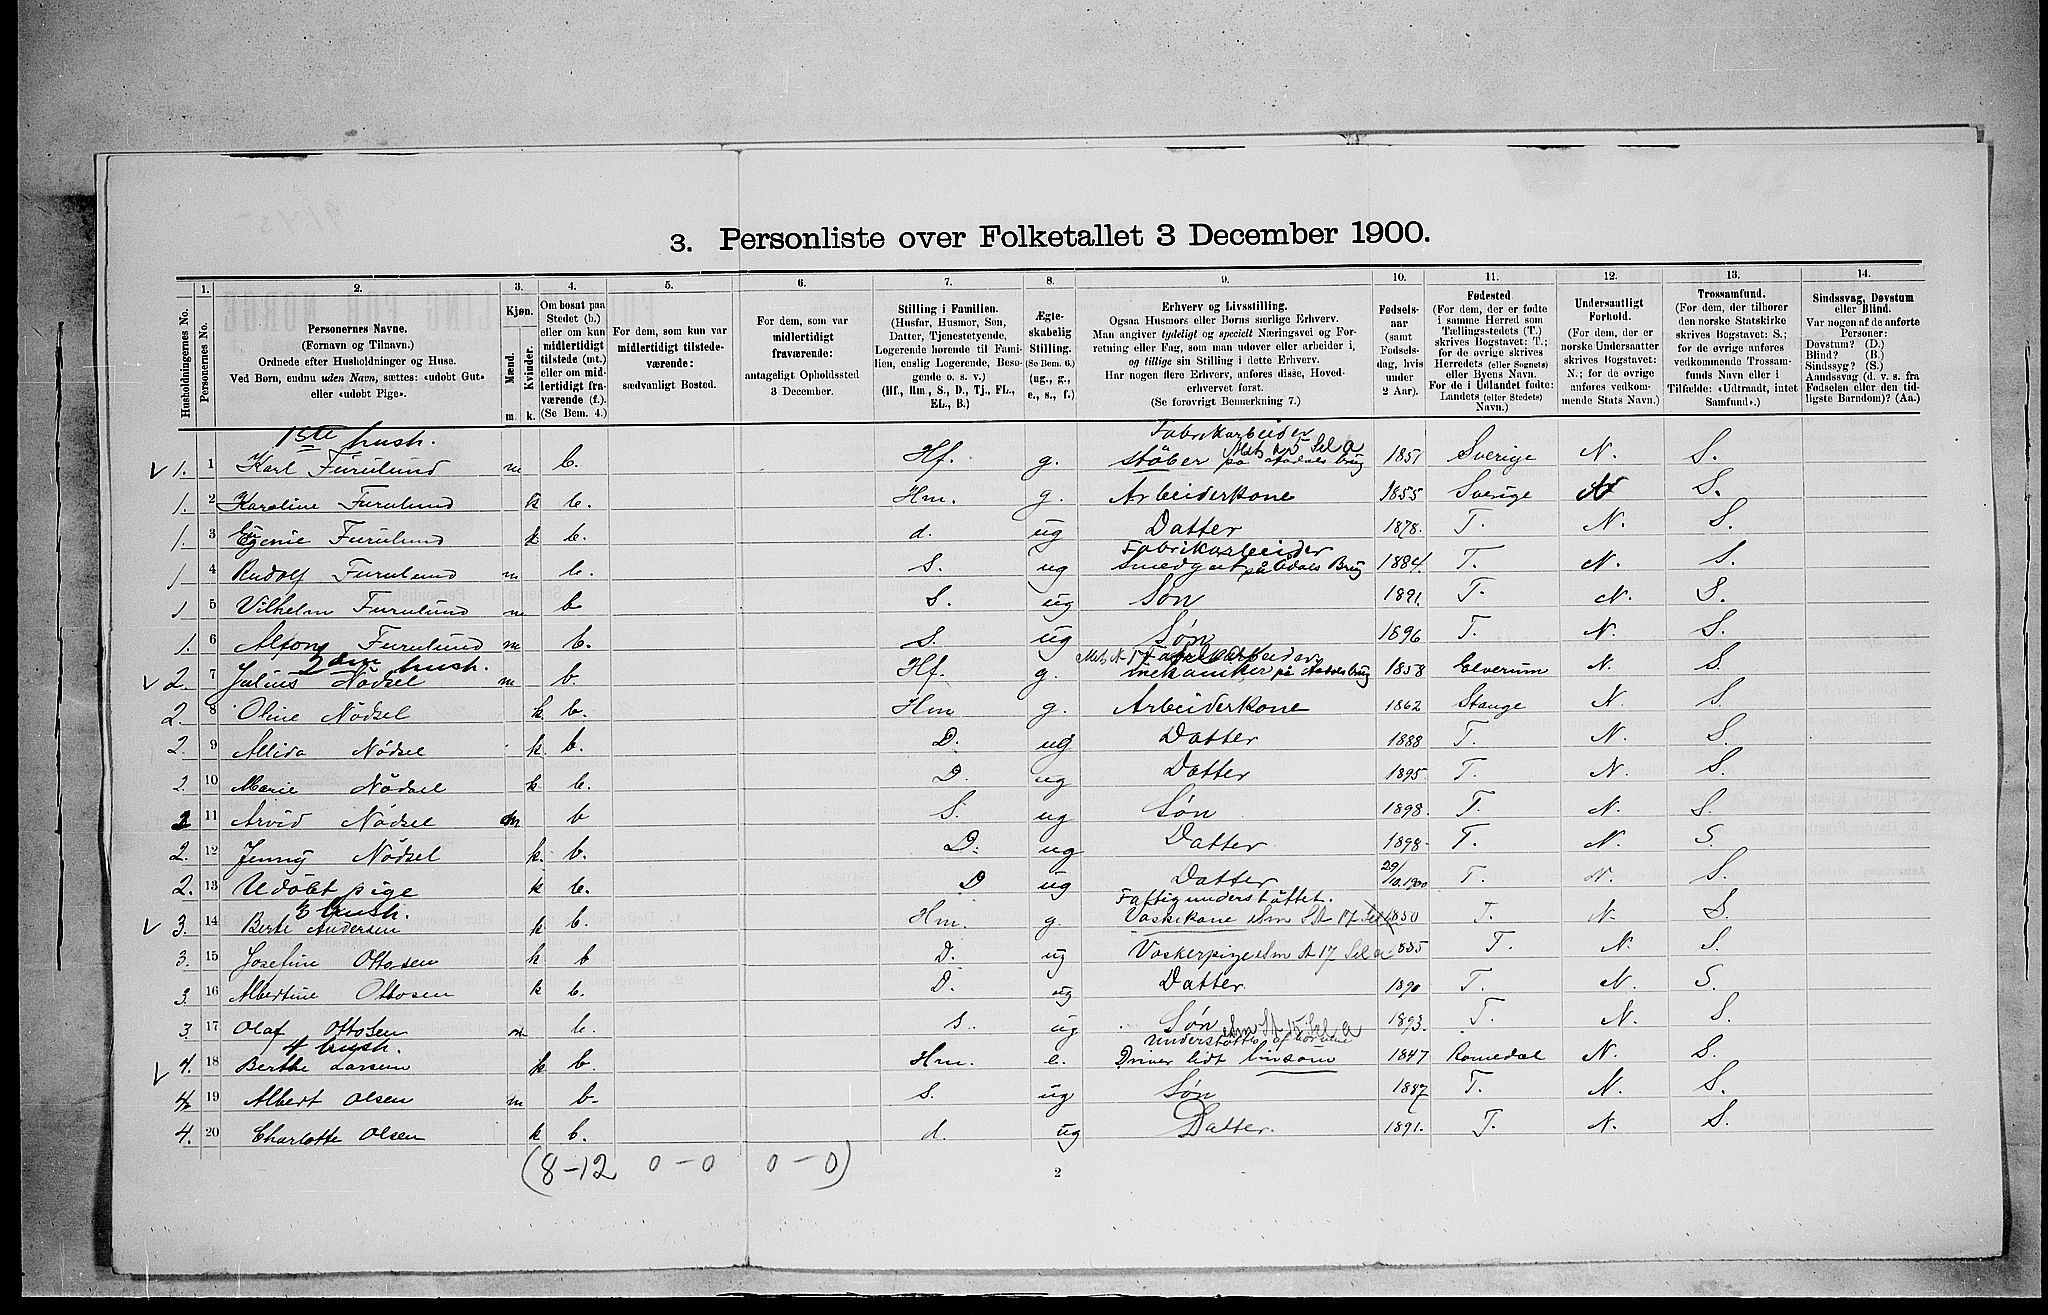 3. Personliste over Folketallet 3 December 1900.
Husholdningernes No.
1. Personernes No.
2. Personernes Navne. (Fornavn og Tilnavn.) Ordnede efter Husholdninger og Huse. Ved Børn, endnu uden Navn, sættes: «udobt Gut» eller «udobt Pige».
3. Kjøn. Mænd. Kvinder. m. k.
4. Om bosat paa Stedet (b.) eller om kun midlertidigt tilstede (mt.) eller om midlertidigt fraværende (f.). (Se Bem. 4.)
5. For dem, som kun var midlertidigt tilstedeværende: sædvanligt Bosted.
6. For dem, som var midlertidigt fraværende: antageligt Opholdssted 3 December.
7. Stilling i Familien. (Husfar, Husmor, Søn, Datter, Tjenestetyende, Logerende hørende til Familien, enslig Logerende, Besøgende o. s. v.) (Hf., Hm., S., D., Tj., FL., EL., B.)
8. Ægteskabelig Stilling. (Se Bem. 6.) (ug., g., e., s., f.)
9. Erhverv og Livsstilling. Ogsaa Husmors eller Børns særlige Erhverv. Man angiver tydeligt og specielt Næringsvei og Forretning eller Fag, som man udover eller arbeider i, og tillige sin Stilling i dette Erhverv. Har nogen flere Erhverv, anføres disse, Hovederhvervet først. (Se forøvrigt Bemærkning 7.)
10. Fødselsaar (samt Fødselsdag, hvis under 2 Aar).
11. Fødested. (For dem, der er fødte i samme Herred som Tællingsstedets (T.) skrives Bogstavet: T.; for de øvrige skrives Herredets (eller Sognets) eller Byens Navn. For de i Udlandet fødte: Landets (eller Stedets) Navn.)
12. Undersaatligt Forhold. (For dem, der er norske Undersaatter skrives Bogstavet: N.; for de øvrige anføres vedkommende Stats Navn.)
13. Trossamfund. (For dem, der tilhører den norske Statskirke skrives Bogstavet: S.; for de øvrige anføres vedkommende Trossamfunds Navn eller i Tilfælde: «Udtraadt, intet Samfund».)
14. Sindssvag, Døvstum eller Blind. Var nogen af de anførte Personer: Døvstum? (D.) Blind? (B.) Sindssyg? (S.) Aandssvag (d. v. s. fra Fødselen eller den tidligste Barndom)? (Aa.)
1ste hush. Fabrikarbeider
1. 1 Karl Furulund m b. Hf. g. støber på Aadals Brug 1851 Sverige N. S.
1. 2 Karoline Furulund k b. Hm. g. Arbeiderkone 1855 Sverige N S.
1. 3 Eugenie Furulund k b. d. ug Datter 1878. T. N. S.
Fabrikarbeider
1 4 Rudolf Furulund m b. S. ug Smedgut på Ådals Brug 1884. T. N. S.
1 5 Vilhelm Furulund m b S. ug Søn 1891. T. N. S.
1. 6 Alfons Furulund m b. S. ug Søn 1896 T. N. S.
2den hush. Fabrikarbeider
2. 7 Julius Nödsel m b Hf. g. mekaniker på Aadals brug 1858 Elverum N. S.
2. 8 Oline Nödsel k b. Hm g. Arbeiderkone 1862 Stange N. S.
2. 9 Allida Nödsel k b. D. ug Datter 1888 T. N. S.
2. 10 Marie Nödsel k b. D. ug Datter 1895 T. N. S.
2 11 Arvid Nödsel m b S. ug Søn 1898. T. N. S.
2. 12 Jenny Nödsel k. b. D. ug Datter 1898 T. N. S.
2. 13 Udöbt pige k b. D ug Datter 29/10.1900 T. N. S.
3 hush. Fattigunderstøttet.
3. 14 Berte Andersen k b. Hm. g. Vaskekone 1850 T. N. S.
3. 15 Josefine Ottosen k b D. ug Vaskerpige 1885 T. N. S.
3. 16 Albertine Ottosen k b. D. ug Datter 1890 T. N. S.
3. 17 Olaf Ottosen m b. S. ug Søn 1893. T. N. S.
4 hush. Understøttes af
4. 18 Berthe Larsen k b. Hm. e. Driver lidt 1847 Romedal N. S.
4 19 Albert Olsen m b. S. ug Søn 1887 T. N. S.
4. 20 Charlotte Olsen k b. d. ug Datter. 1891. T. N. S.
(8-12 0-0 0-0)
2